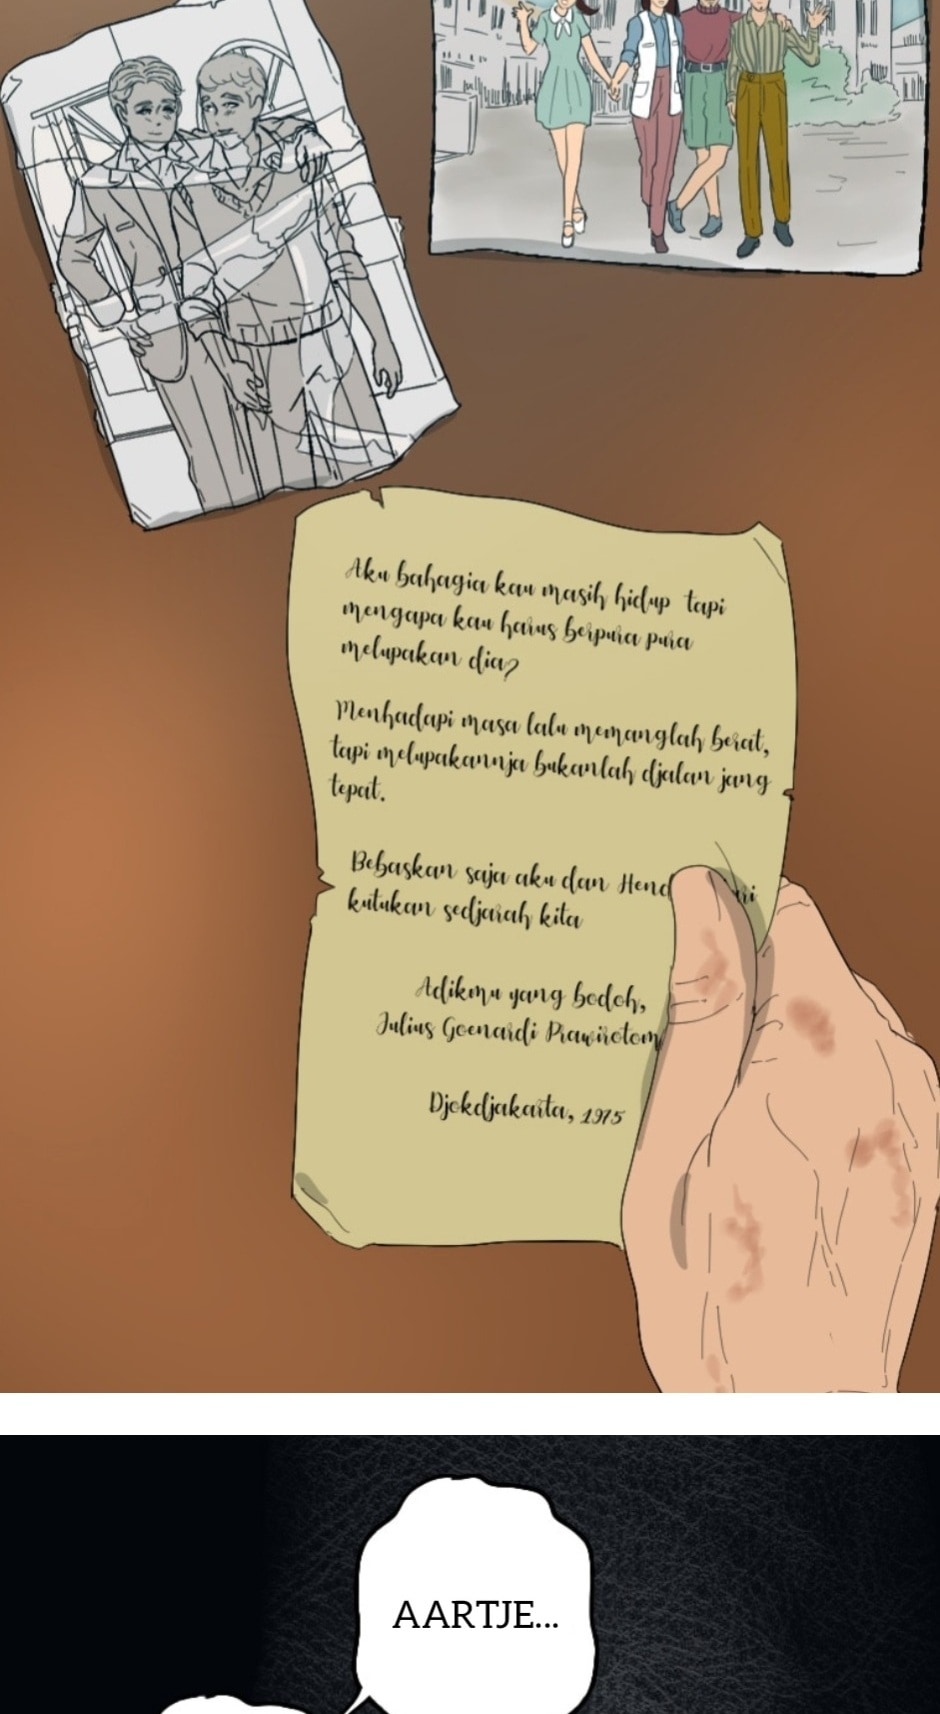 Aku bahagia kau masih hidup tapi
mengapa kau harus berpura pura
melupakan dia?
Menhadapi masa lalu memanglah berat,
tapi melupakannja bukanlah djalan jang
tepat.
Bebaskan saja aku dan
kutukan sedjarah kita
Adikmu yang bodoh,
Julius Goenardi
Djokdjakarta, 1975
AARTJE...